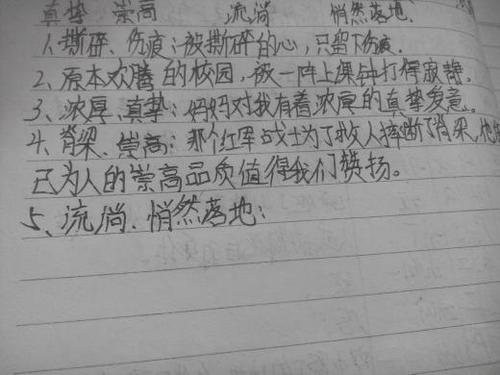 真挚 崇高 流淌 悄然落地
1、撕碎、伤痕:被撕碎的心,只留下伤痕.
2、原本欢腾的校园,被一阵上课钟打得寂静.
3、浓厚、真挚:妈妈对我有着浓厚的真挚爱意.
4、脊梁、崇高:那个红军战士为了救人摔断了脊梁,他
己为人的崇高品质值得我们赞扬。
5、流淌、悄然落地: